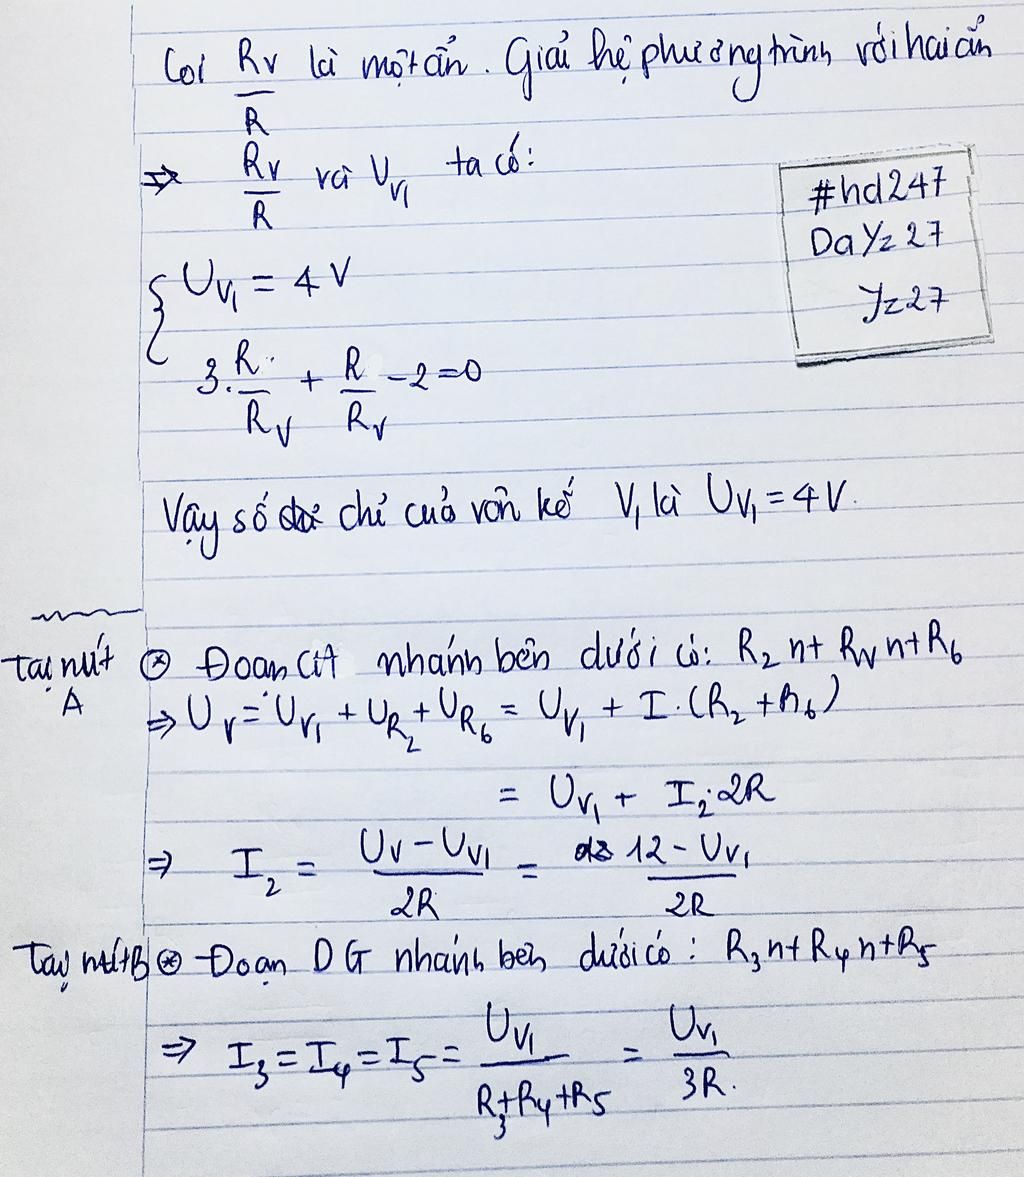 Coi Rv/R là một ẩn. Giải hệ phương trình với hai ẩn
⇒ Rv/R và U_V1 ta có:
#hd247
DaYz27
Yz27
{ U_V1 = 4V
3. R/R_V + R/R_V - 2 = 0
Vậy số chỉ của vôn kế V1 là U_V1 = 4V.
Tại nút A ⊛ Đoạn CA nhánh bên dưới có: R2 nt RV nt R6
⇒ U_V = U_V1 + U_R2 + U_R6 = U_V1 + I.(R2 + R6)
= U_V1 + I2.2R
⇒ I2 = (U_V - U_V1)/2R = (12 - U_V1)/2R
Tại nút B ⊛ Đoạn DG nhánh bên dưới có: R3 nt R4 nt R5
⇒ I3 = I4 = I5 = U_V1/(R3+R4+R5) = U_V1/3R.